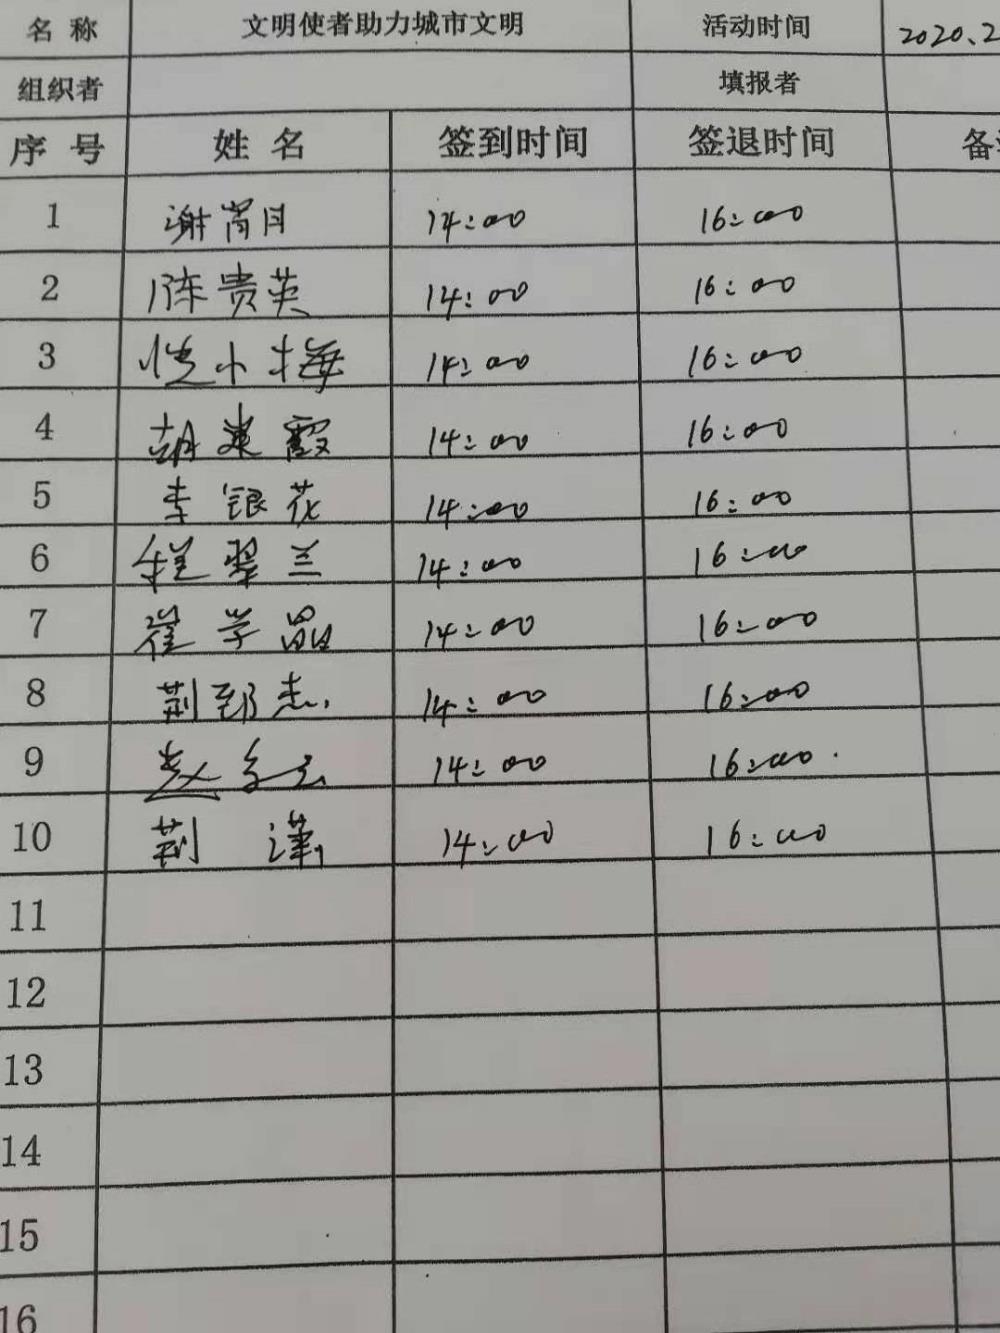 名 称 文明使者助力城市文明 活动时间 2020.2
组织者 填报者
序 号 姓 名 签到时间 签退时间 备
1 谢 月 14:00 16:00
2 陈贵英 14:00 16:00
3 小梅 14:00 16:00
4 胡 霞 14:00 16:00
5 李银花 14:00 16:00
6 程翠兰 14:00 16:00
7 崔学晶 14:00 16:00
8 荆郅杰 14:00 16:00
9 赵 14:00 16:00
10 荆 谨 14:00 16:00
11
12
13
14
15
16